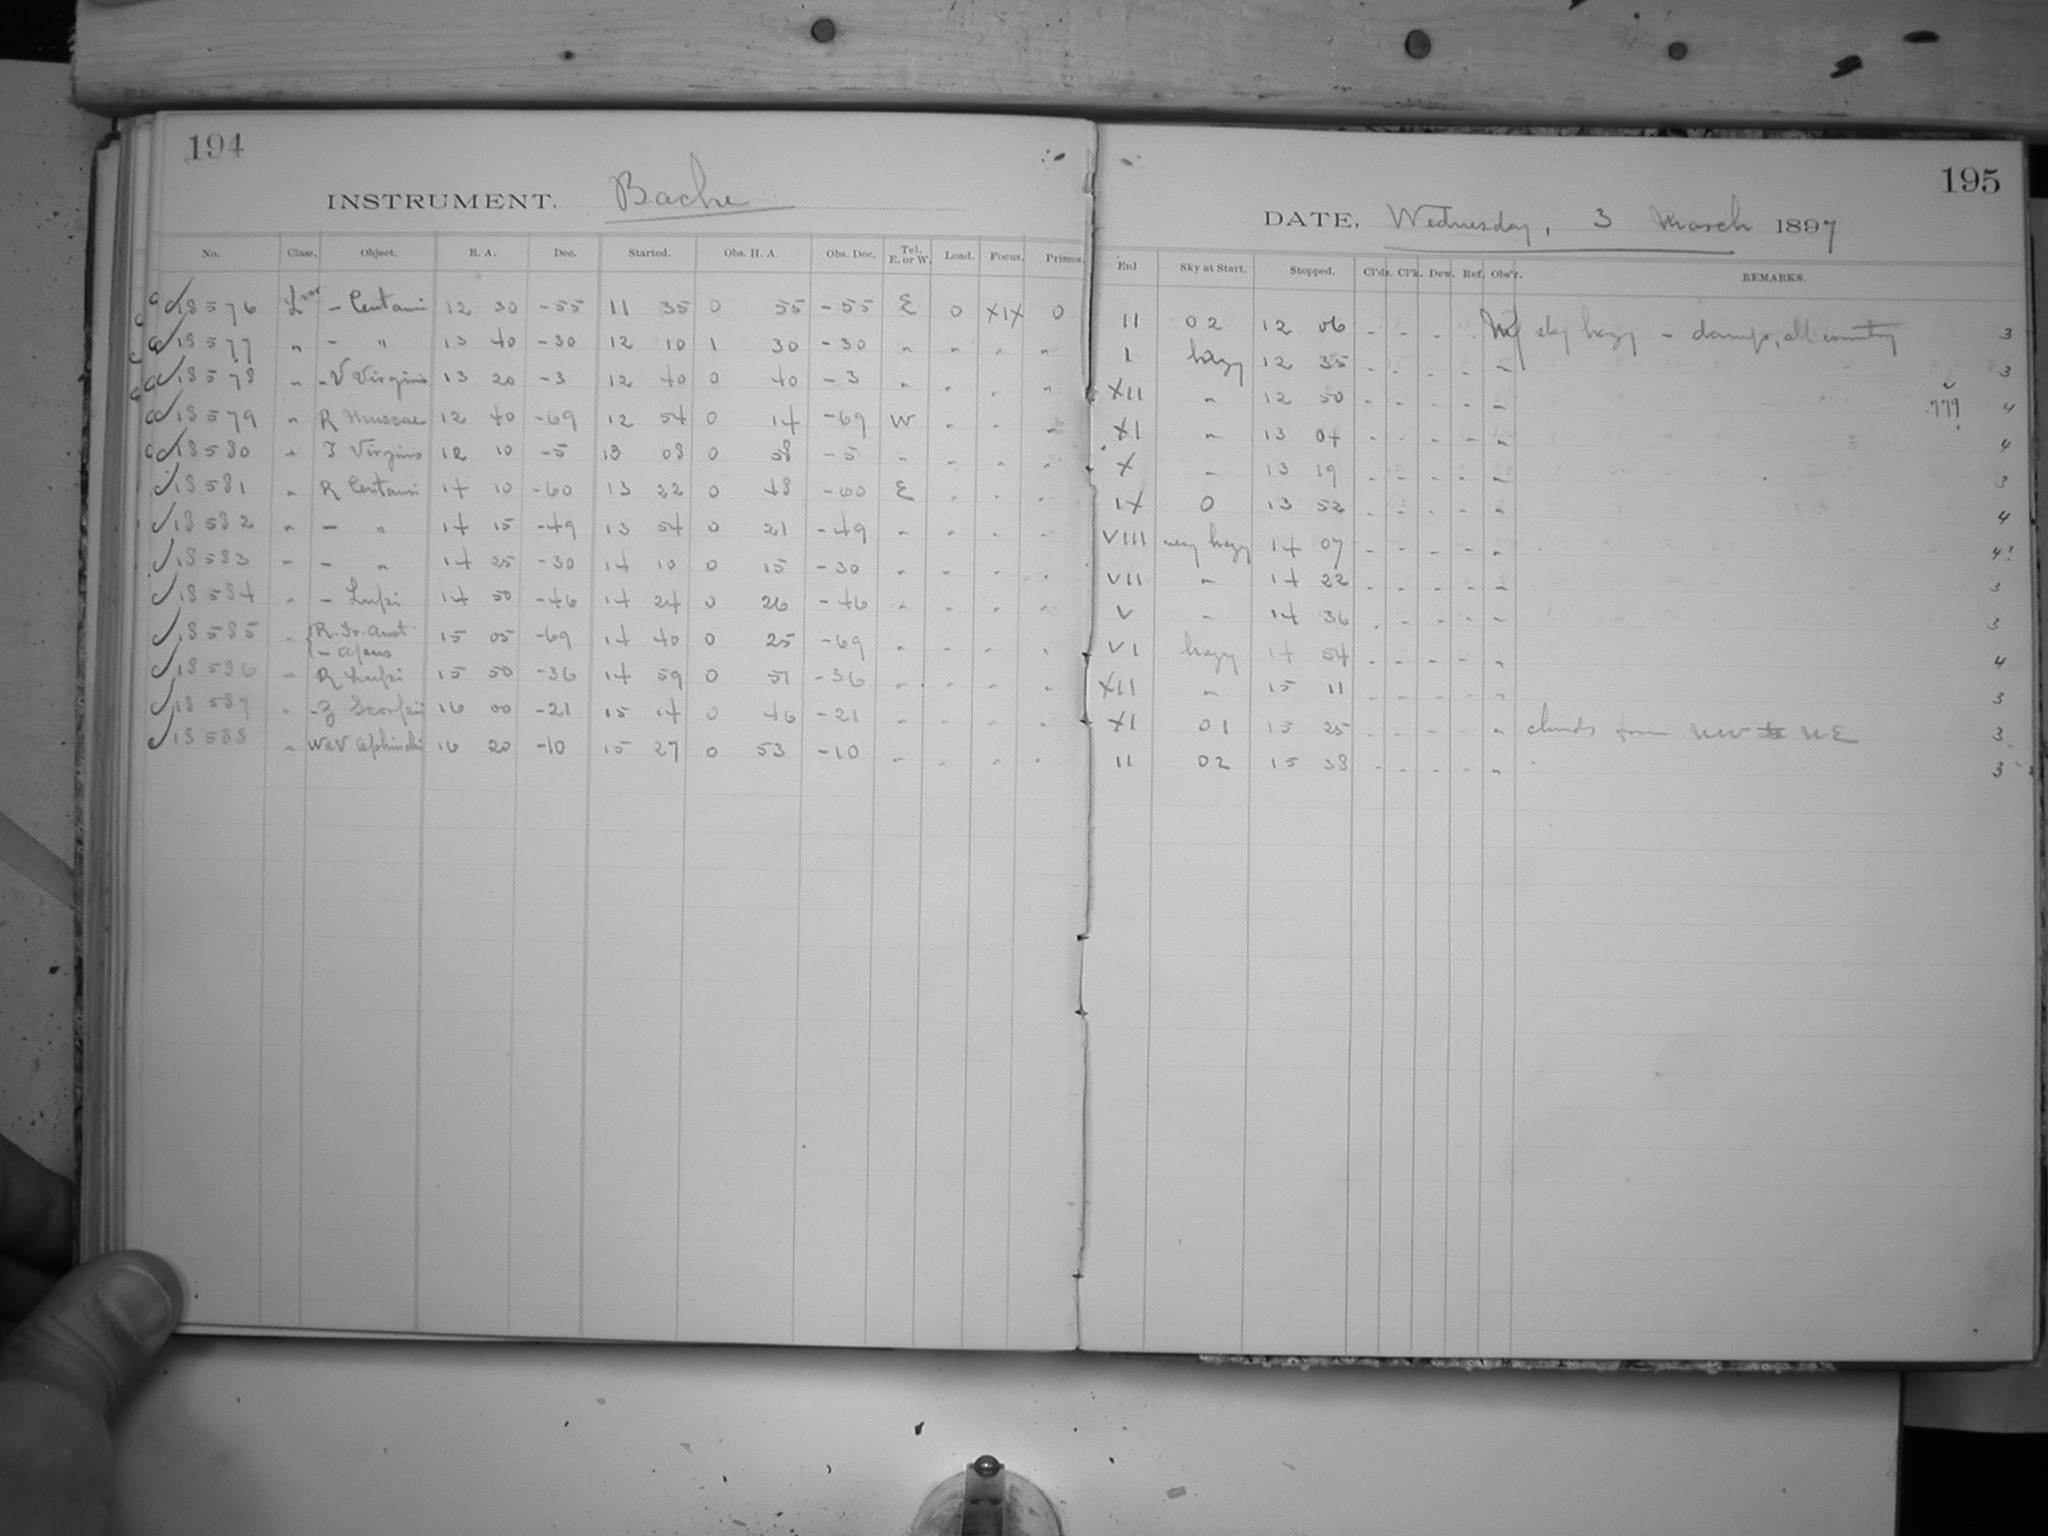 194
INSTRUMENT. Bache
No. Class. Object. R. A. Dec. Started. Obs. H. A. Obs. Dec. Tel. E. or W. Load. Focus. Prisms.
18576 L var - Centauri 12 30 -55 11 35 0 55 -55 E 0 XIX 0
18577 " - " 13 40 -30 12 10 1 30 -30 " " " "
18578 " - V Virginis 13 20 -3 12 40 0 40 -3 " " " "
18579 " R Muscae 12 40 -69 12 54 0 14 -69 W " " "
18580 " T Virginis 12 10 -5 13 08 0 58 -5 " " " "
18581 " R Centauri 14 10 -60 13 22 0 48 -60 E " " "
18582 " - " 14 15 -49 13 54 0 21 -49 " " " "
18583 " - " 14 25 -30 14 10 0 15 -30 " " " "
18584 " - Lupi 14 50 -46 14 24 0 26 -46 " " " "
18585 " R. Tr. Aust. 15 05 -69 14 40 0 25 -69 " " " "
- Apus
18586 " R Lupi 15 50 -36 14 59 0 51 -36 " " " "
18587 " - Z Scorpii 16 00 -21 15 14 0 46 -21 " " " "
18588 " W & V Ophiuchi 16 20 -10 15 27 0 53 -10 " " " "
195
DATE, Wednesday, 3 March 1897
Enl Sky at Start. Stopped. Cl'ds. Cl'k. Dew. Ref. Obs'r. REMARKS.
II 02 12 06 - - - - sky hazy - damp, all 3
I hazy 12 35 - - - - " 3
XII " 12 50 - - - - " 4
XI " 13 04 - - - - " 4
X " 13 19 - - - - " 3
IX 0 13 52 - - - - " 4
VIII very hazy 14 07 - - - - " 4?
VII " 14 22 - - - - " 3
V " 14 36 - - - - " 3
VI hazy 14 54 - - - - " 4
XII " 15 11 - - - - " 3
XI 01 15 25 - - - - " clouds from NW to NE 3
II 02 15 38 - - - - " 3